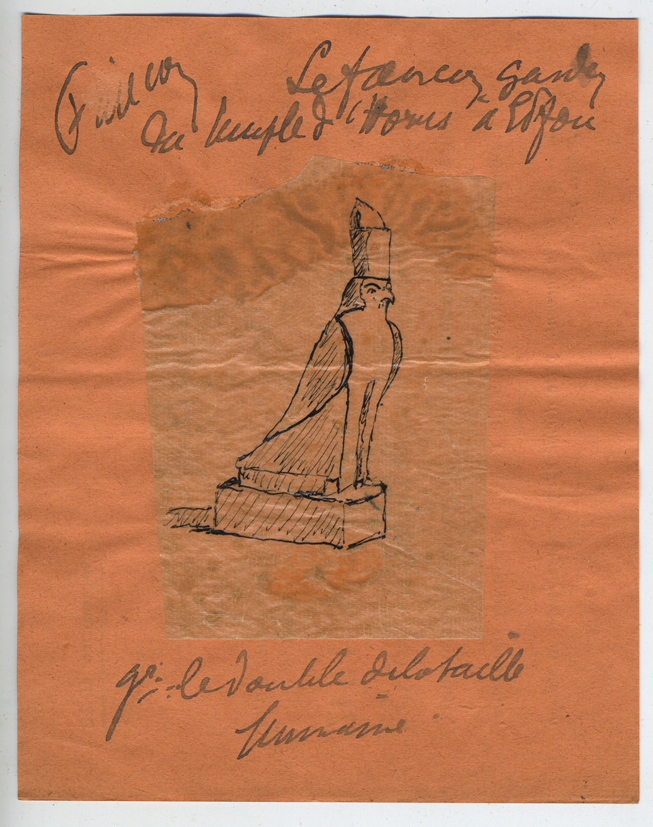 Le faucon garde
du temple d'Horus à Edfou
le double de la taille
humaine